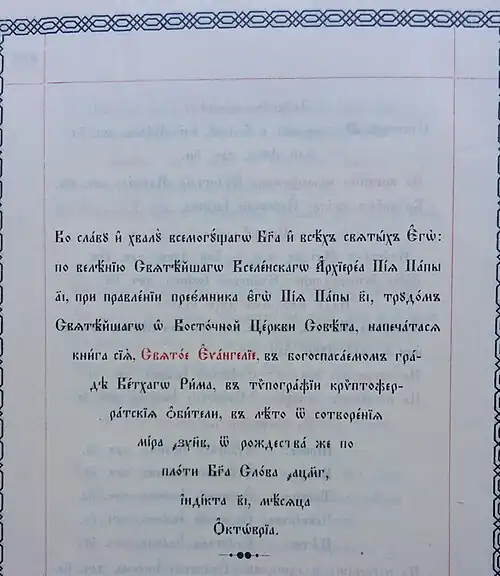 Во сла́вꙋ и҆ хвалꙋ̀ всемогꙋ́щагѡ Бг҃а и҆ всѣ́хъ свѧты́хъ Є҆гѡ̀:
по велѣ́нїю Свѧтѣ́йшагѡ Вселе́нскагѡ А҆рхїере́а Пі́ѧ Па́пы
а҃і, при правле́нїи прее́мника є҆гѡ̀ Пі́ѧ Па́пы в҃і, трꙋдо́мъ
Свѧтѣ́йшагѡ ѿ Восто́чной Це́ркви Совѣ́та, напеча́тасѧ
кни́га сїѧ̀, Свѧто́е Є҆ѵа́нгелїе, въ богоспаса́емомъ гра́-
дѣ Ве́тхагѡ Ри́ма, въ тѷпогра́фїи крѷптофер-
ра́тскїѧ ѻ҆би́тели, въ лѣ́то ѿ сотворе́нїѧ
мі́ра ҂зꙋн҃в, ѿ рождества́ же по
пло́ти Бг҃а Сло́ва ҂ацм҃г,
і҆нді́кта в҃і, мѣ́сѧца
Ѻ҆ктѡ́врїа.